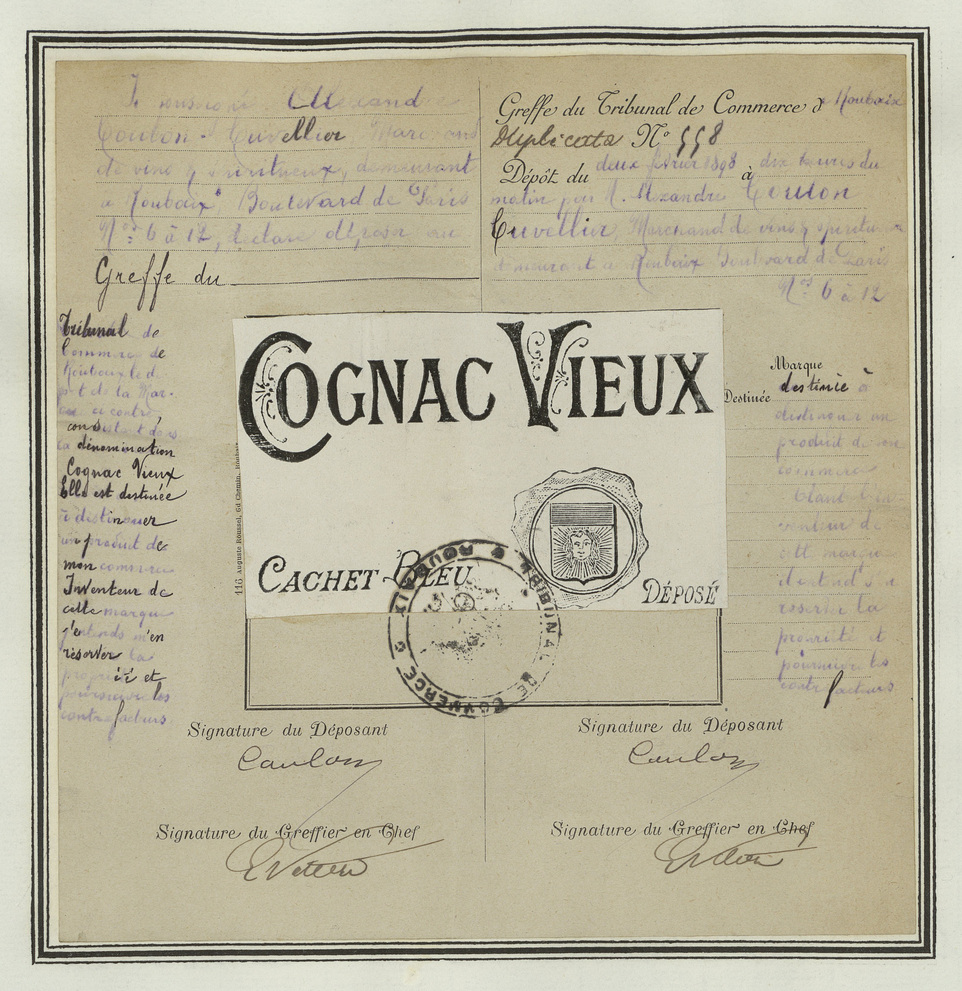 Je soussigné, Alexandre
Coulon-Cuvellier, Marchand
de vins & spiritueux, demeurant
à Roubaix, Boulevard de Paris
Nos 6 à 12, déclare déposer au
Greffe du
Tribunal de
Commerce de
Roubaix le dé-
pôt de la Mar-
que ci contre,
consistant dans
la dénomination
Cognac Vieux
Elle est destinée
à distinguer
un produit de
mon commerce
Inventeur de
cette marque
j'entends m'en
réserver la
propriété et
poursuivre les
contrefacteurs
Greffe du Tribunal de Commerce de Roubaix
Duplicata No 558
Dépôt du deux février 1898 à dix heures du
matin par M. Alexandre Coulon
Cuvellier, Marchand de vins & spiritueux
demeurant à Roubaix Boulevard de Paris
Nos 6 à 12
Marque
Destinée destinée à
distinguer un
produit de son
commerce
Étant l'in-
venteur de
cette marque
il entend s'en
réserver la
propriété et
poursuivre les
contrefacteurs
COGNAC VIEUX
CACHET BLEU
DÉPOSÉ
116 Auguste Roussel, Gd Chemin, Roubaix
TRIBUNAL DE COMMERCE ROUBAIX
Signature du Déposant
Coulon
Signature du Greffier en Chef
Signature du Déposant
Coulon
Signature du Greffier en Chef